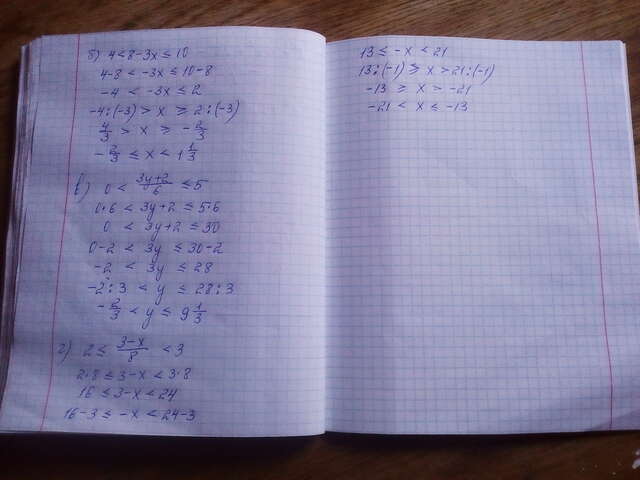 б) 4 < 8 - 3x ≤ 10
4 - 8 < -3x ≤ 10 - 8
-4 < -3x ≤ 2
-4 : (-3) > x ≥ 2 : (-3)
4/3 > x ≥ -2/3
-2/3 ≤ x < 1 1/3
в) 0 < (3y+2)/6 ≤ 5
0·6 < 3y+2 ≤ 5·6
0 < 3y+2 ≤ 30
0-2 < 3y ≤ 30-2
-2 < 3y ≤ 28
-2 : 3 < y ≤ 28 : 3
-2/3 < y ≤ 9 1/3
г) 2 ≤ (3-x)/8 < 3
2·8 ≤ 3-x < 3·8
16 ≤ 3-x < 24
16-3 ≤ -x < 24-3
13 ≤ -x < 21
13 : (-1) ≥ x > 21 : (-1)
-13 ≥ x > -21
-21 < x ≤ -13